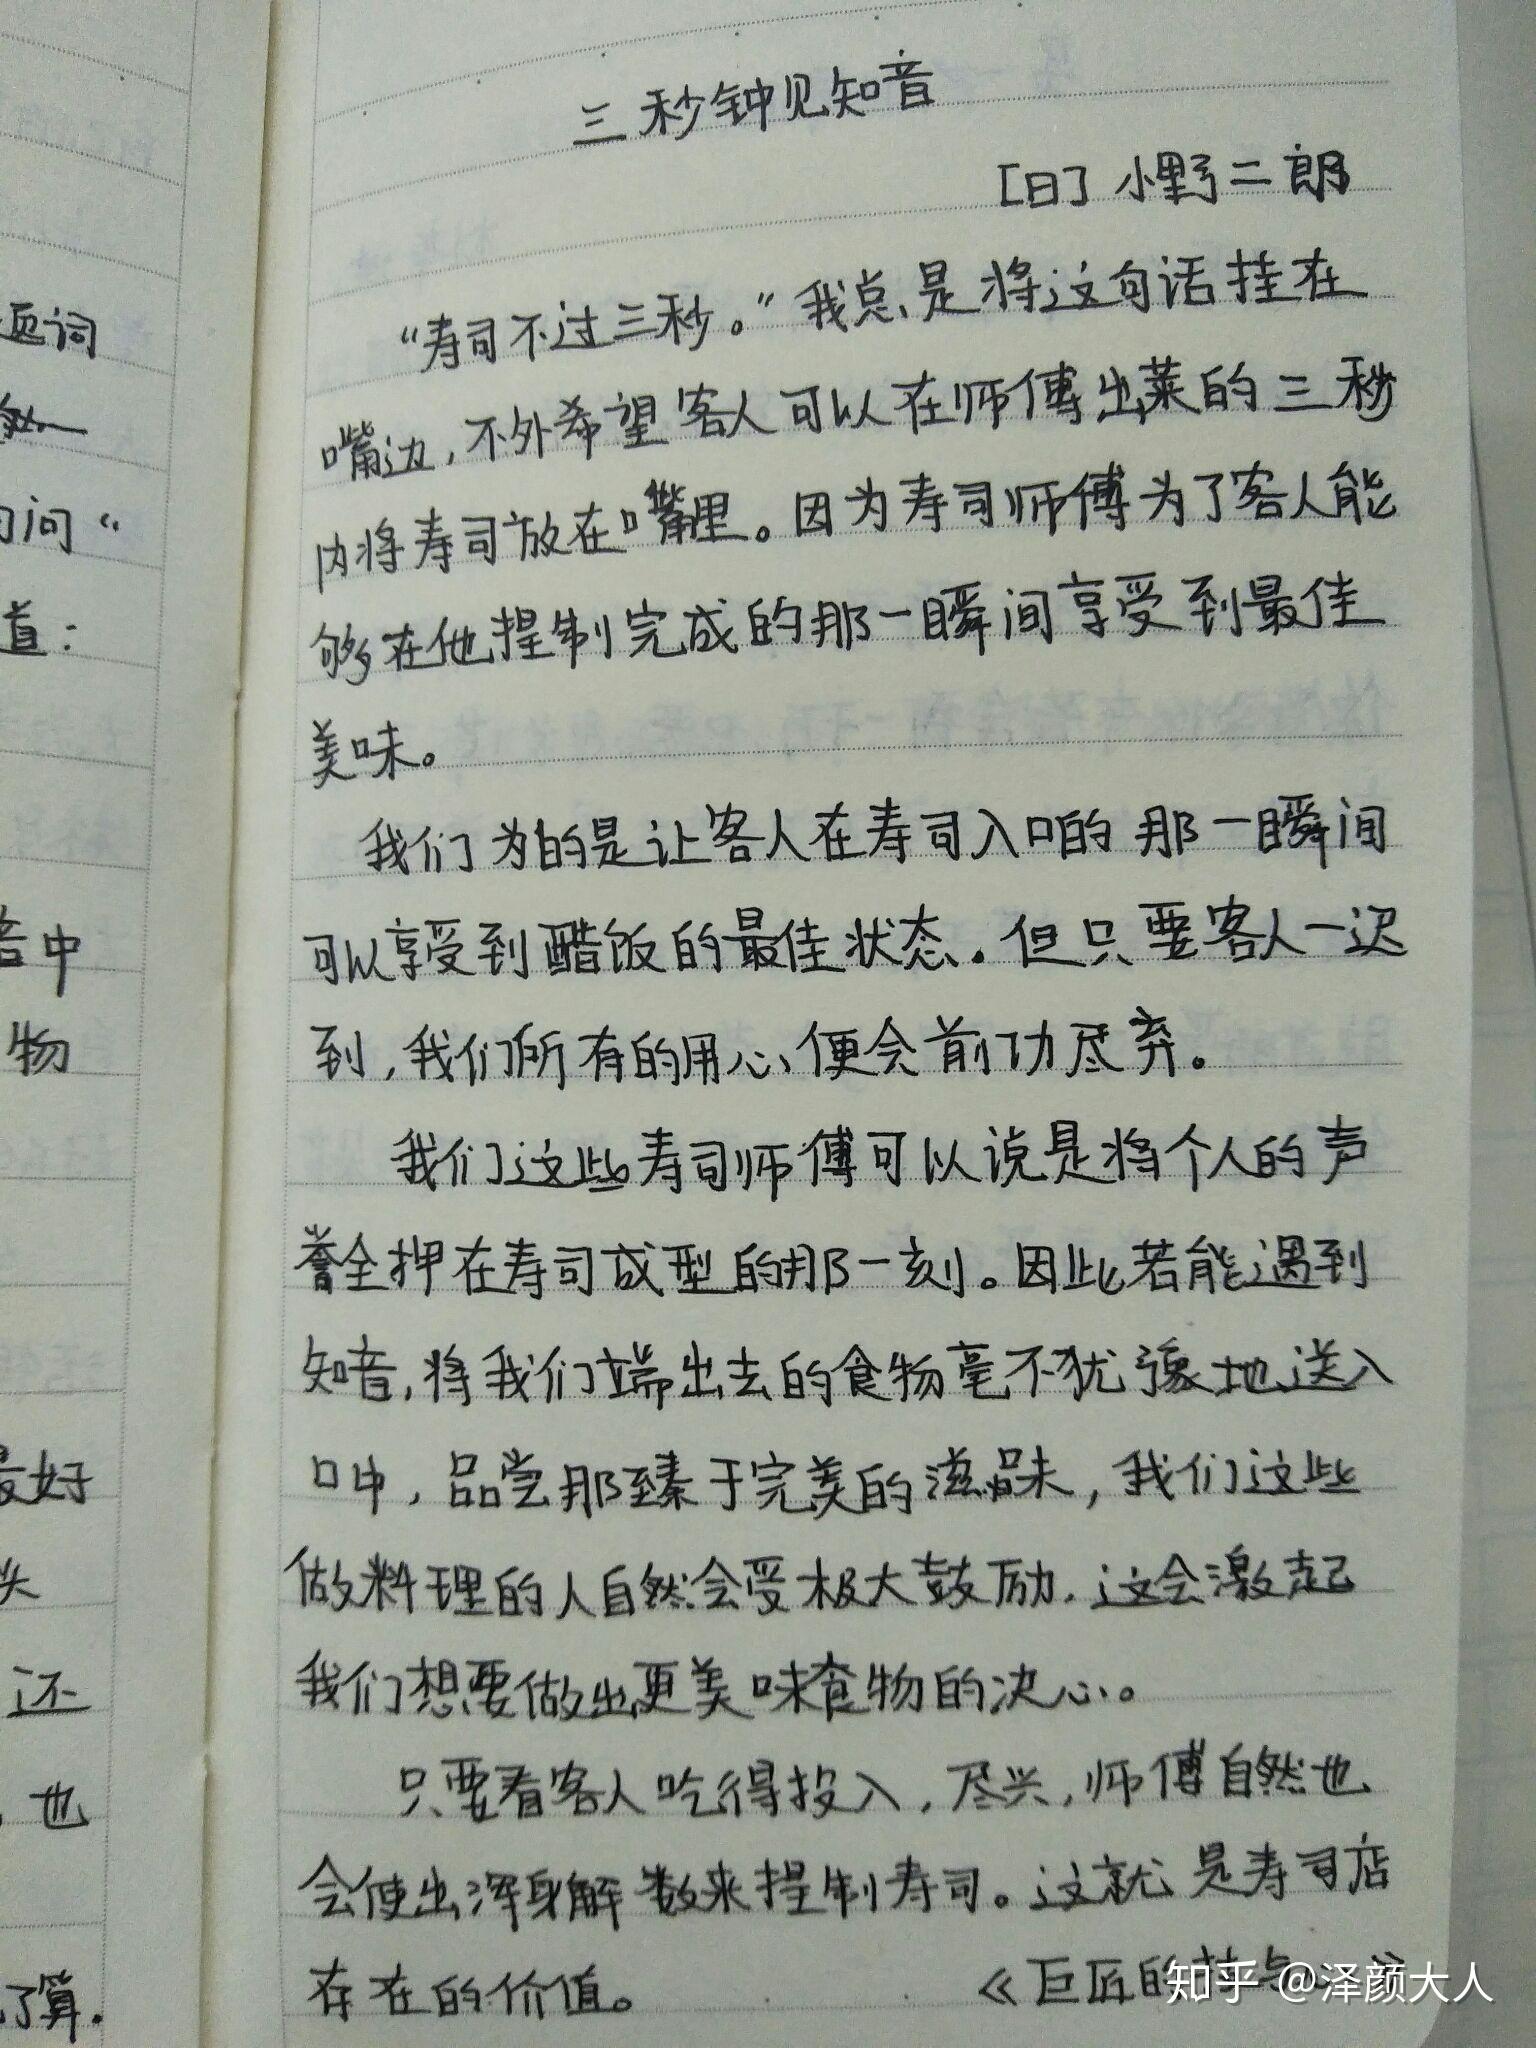 三秒钟见知音
[日]小野二朗
“寿司不过三秒。”我总是将这句话挂在
嘴边,不外希望客人可以在师傅出菜的三秒
内将寿司放在嘴里。因为寿司师傅为了客人能
够在他捏制完成的那一瞬间享受到最佳
美味。
我们为的是让客人在寿司入口的那一瞬间
可以享受到醋饭的最佳状态。但只要客人一迟
到,我们所有的用心便会前功尽弃。
我们这些寿司师傅可以说是将个人的声
誉全押在寿司成型的那一刻。因此若能遇到
知音,将我们端出去的食物毫不犹豫地送入
口中,品尝那臻于完美的滋味,我们这些
做料理的人自然会受极大鼓励.这会激起
我们想要做出更美味食物的决心。
只要看客人吃得投入,尽兴,师傅自然也
会使出浑身解数来捏制寿司。这就是寿司店
存在的价值。
《巨匠的技与心
题词
问“
道:
中
物
最好
头
还
,也
了算.
知乎 @泽颜大人